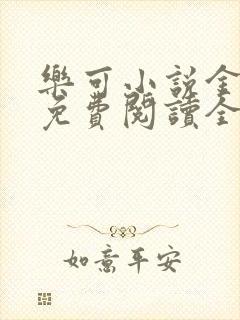 樂可小說全
免費閱讀全
如意平安